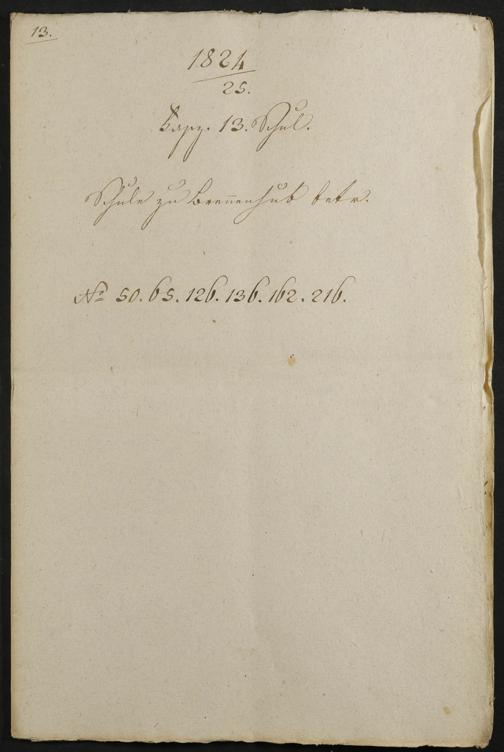 13.
1824
25.
13. Schul.
Schule zu Brennenhub betr.
No 50. 65. 126. 136. 162. 216.